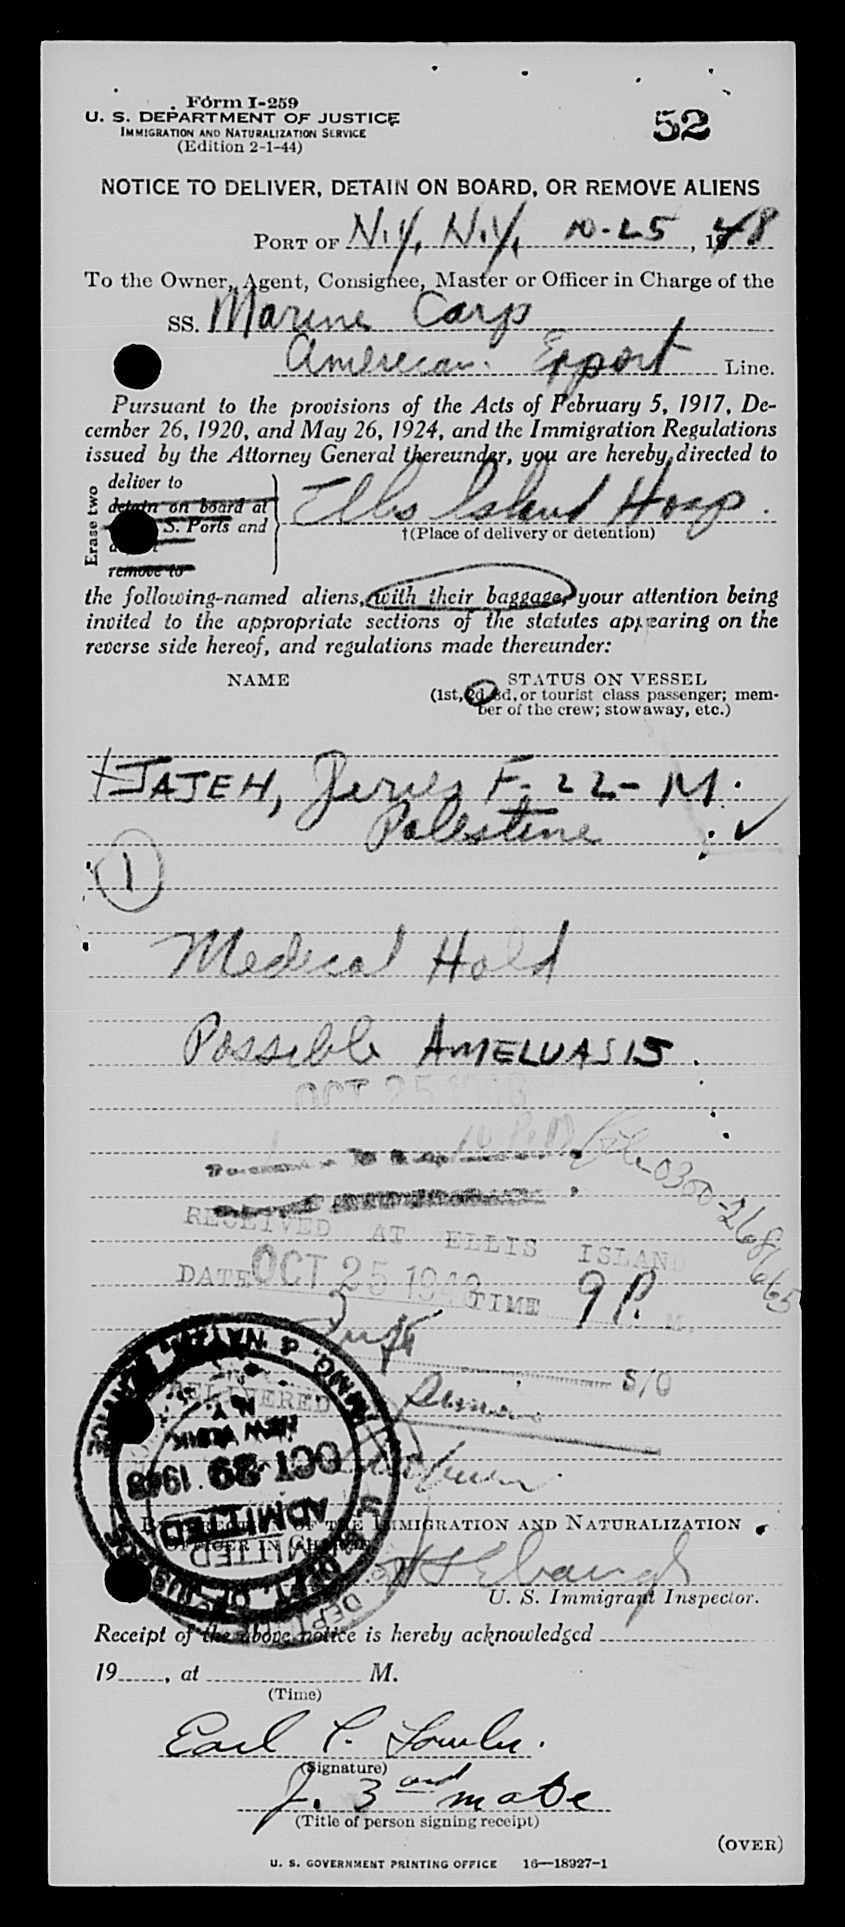 Form I-259
U. S. DEPARTMENT OF JUSTICE
IMMIGRATION AND NATURALIZATION SERVICE
(Edition 2-1-44)
52
NOTICE TO DELIVER, DETAIN ON BOARD, OR REMOVE ALIENS
PORT OF N.Y, N.Y, 10-25, 1948
To the Owner, Agent, Consignee, Master or Officer in Charge of the
SS. Marine Carp
American Export Line.
Pursuant to the provisions of the Acts of February 5, 1917, De-
cember 26, 1920, and May 26, 1924, and the Immigration Regulations
issued by the Attorney General thereunder, you are hereby directed to
Erase two
deliver to
detain on board at
S. Ports and
remove to
Ellis Island Hosp.
†(Place of delivery or detention)
the following-named aliens, with their baggage, your attention being
invited to the appropriate sections of the statutes appearing on the
reverse side hereof, and regulations made thereunder:
NAME
STATUS ON VESSEL
(1st, 2d, 3d, or tourist class passenger; mem-
ber of the crew; stowaway, etc.)
JAJEH, Jeries F. 22-M.
Palestine ✓
1
Medical Hold
Possible AMELUASIS.
OCT 25 1948
0300-268665
RECEIVED AT ELLIS ISLAND
DATE OCT 25 1948 TIME 9 P. M.
S/O
DELIVERED
IMMIG. & NATZ. SERVICE
NEW YORK
N.Y.
OCT 29 1948
ADMITTED
U.S. DEPT. OF JUSTICE
OF THE IMMIGRATION AND NATURALIZATION
OFFICER IN CHARGE
U. S. Immigrant Inspector.
Receipt of the above notice is hereby acknowledged
19, at M.
(Time)
Earl
(Signature)
J. 3rd mate
(Title of person signing receipt)
(OVER)
U. S. GOVERNMENT PRINTING OFFICE 16—18927-1